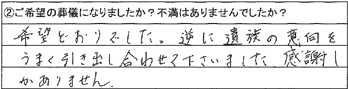 ②ご希望の葬儀になりましたか？不満はありませんでしたか？
希望どおりでした。逆に遺族の意向を
うまく引き出し合わせて下さいました。感謝し
かありません。